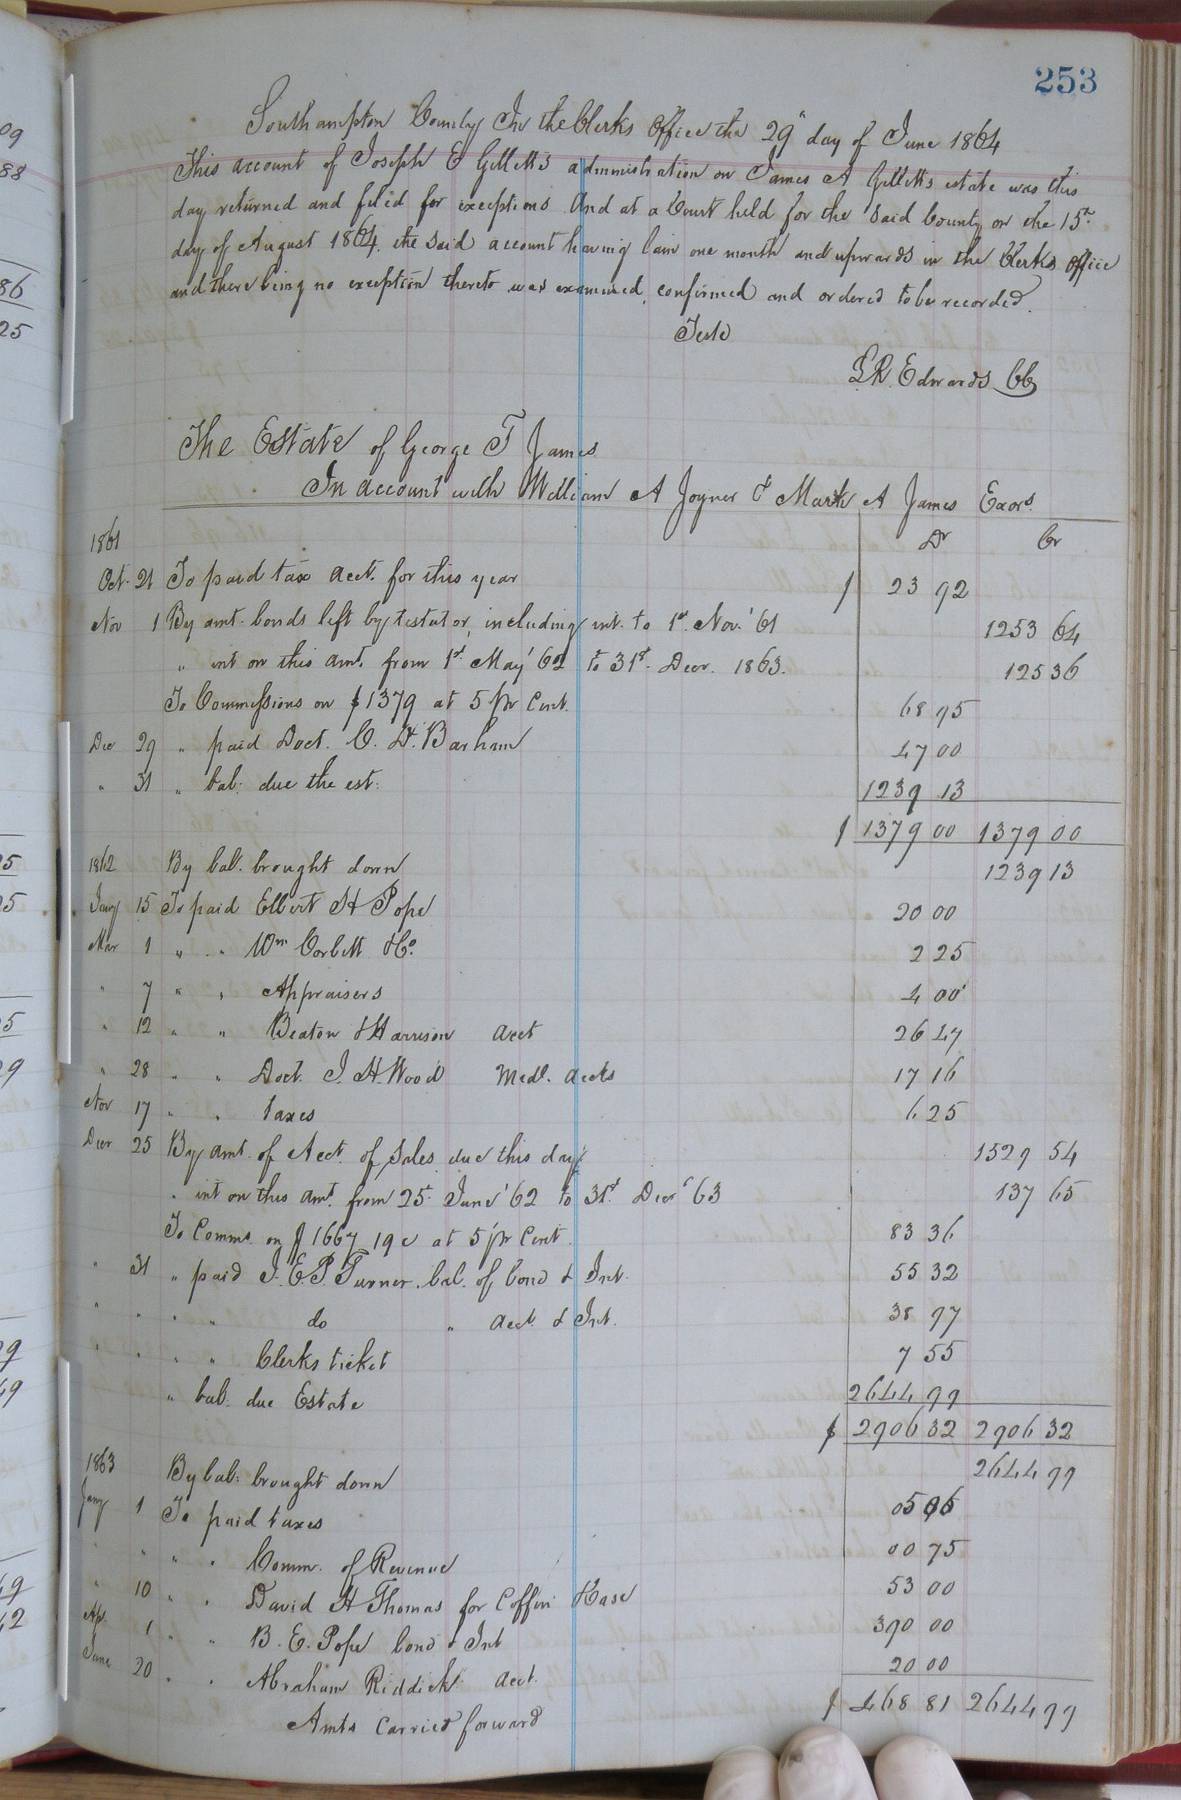 253
Southampton County In the Clerks Office the 29" day of June 1864
This account of Joseph E Gillett's administration on James A Gilletts estate was this
day returned and filed for exceptions And at a Court held for the said County on the 15th
day of August 1864. the said account having lain one month and upwards in the Clerks office
and there being no exception thereto was examined, confirmed and ordered to be recorded.
Teste
L. R. Edwards CC
The Estate of George T James
In account with William A Joyner & Mark A James Exors.
1861 Dr Cr
Oct. 21 To paid tax acct. for this year $ 23 92
Nov 1 By amt. bonds left by testator, including int. to 1st. Nov. '61 1253 64
" int on this amt. from 1st May '62 to 31st. Decr. 1863. 125 36
To Commissions on $1379 at 5 pr Cent. 68 95
Dec 29 " paid Doct. C. H. Barham 47 00
" 31 " bal: due the est: 1239 13
$ 1379 00 1379 00
1862 By bal. brought down 1239 13
Jany 15 To paid Elbert H Pope 20 00
Mar 1 " " Wm Corbett & Co. 2 25
" 7 " " Appraisers 4 00
" 12 " " Beaton & Harrison acct 26 47
" 28 " " Doct. J. H. Wood Medl. accts 17 16
Nov 17 " " taxes 6 25
Decr 25 By amt. of Acct. of Sales due this day 1529 54
" int on this amt. from 25t. June '62 to 31st. Decr '63 137 65
To Comms. on $1667 19 c at 5 pr Cent. 83 36
" 31 " paid J. E. P. Turner. bal. of bond & Int. 55 32
" " " " do " acct. & Int. 38 97
" " " " Clerks ticket 7 55
" bal. due Estate 2644 99
$ 2906 32 2906 32
1863 By bal: brought down 2644 99
Jany 1 To paid taxes 05 06
" " " Comm. of Revenue 00 75
" 10 " " David H Thomas for Coffin & Case 53 00
Ap. 1 " " B. E. Pope bond & Int 390 00
June 20 " " Abraham Riddick acct. 20 00
Amts carried forward $ 468 81 2644 99